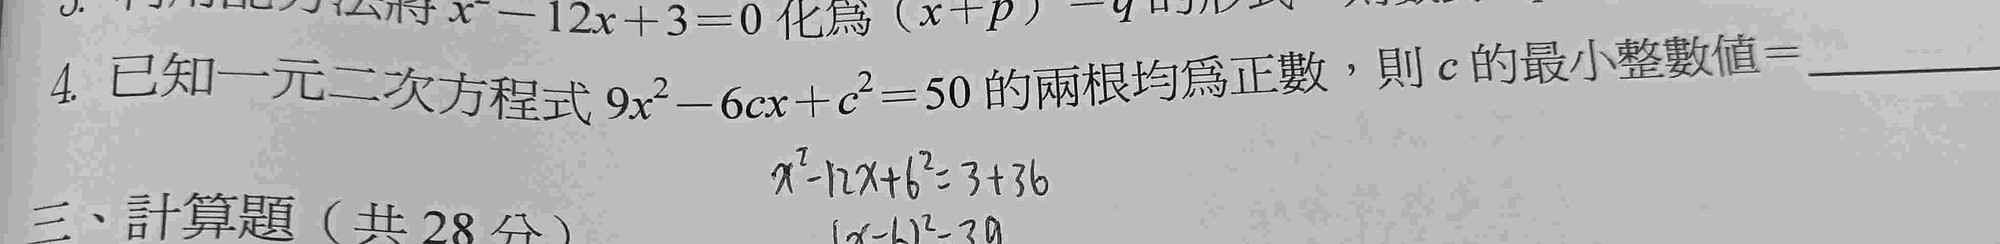 x² − 12x + 3 = 0 化為 (x + p)
4. 已知一元二次方程式 9x² − 6cx + c² = 50 的兩根均為正數，則 c 的最小整數值 = ______
x² - 12x + 6² = 3 + 36
(x - 6)² = 39
三、計算題（共 28 分）